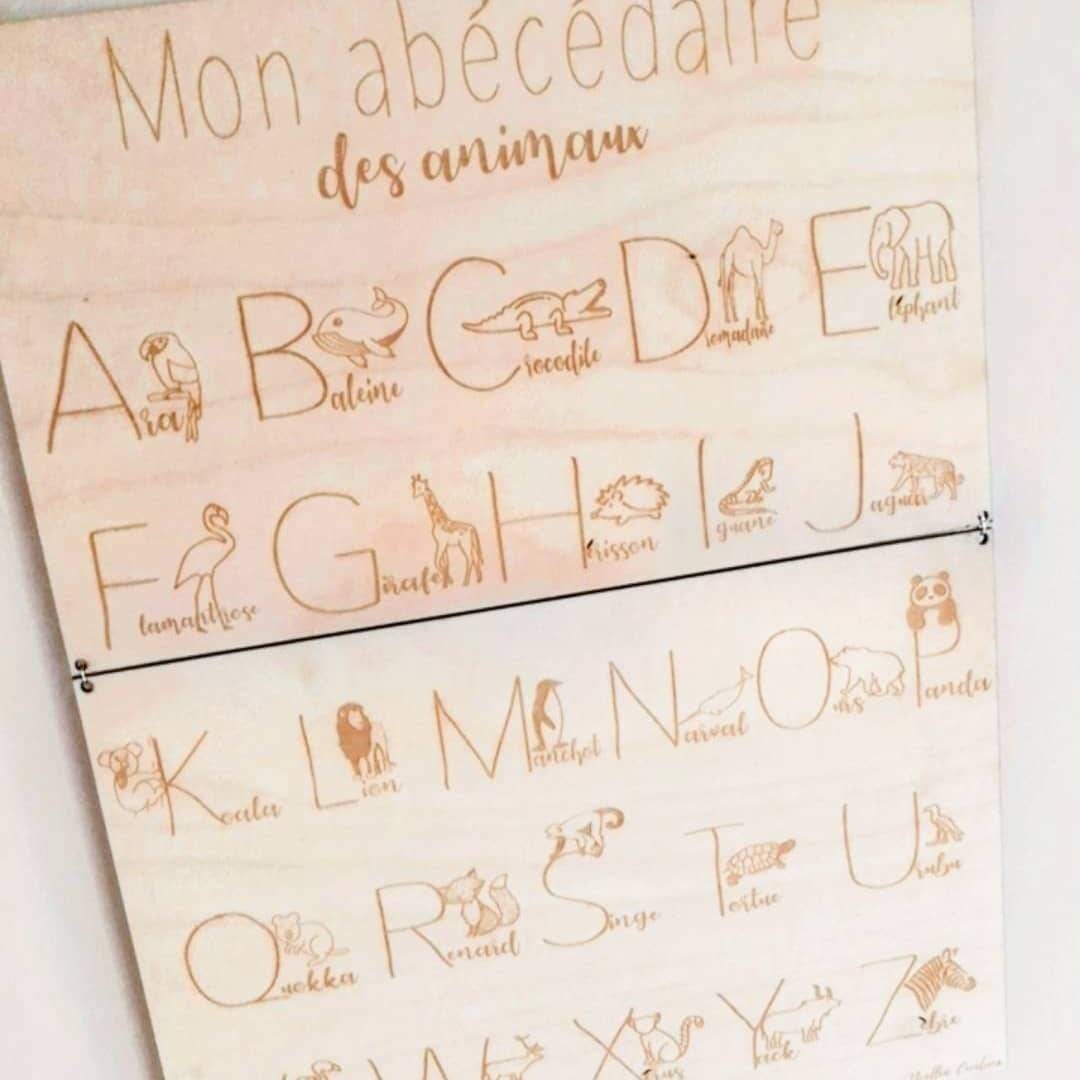 Mon abécédaire
des animaux
Ara Baleine Crocodile Dromadaire Eléphant
Flamant rose Girafe Hérisson Iguane Jaguar
Koala Lion Manchot Narval Ours Panda
Quokka Renard Singe Tortue Urubu
W Xérus Yack Zèbre